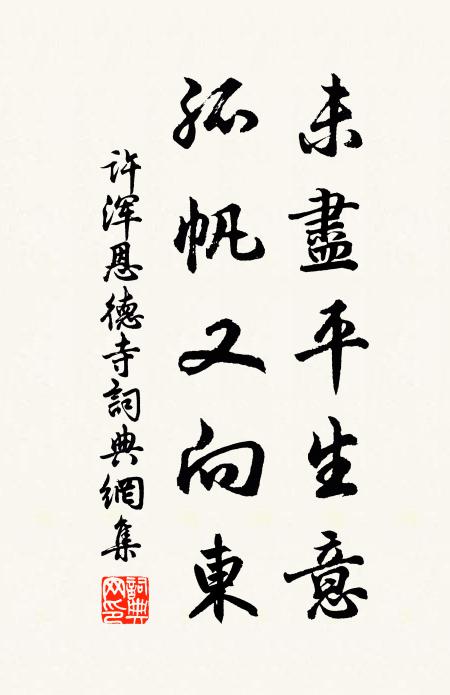 未盡平生意
孤帆又向東
许渾恩德寺詞典網集
詞典网印